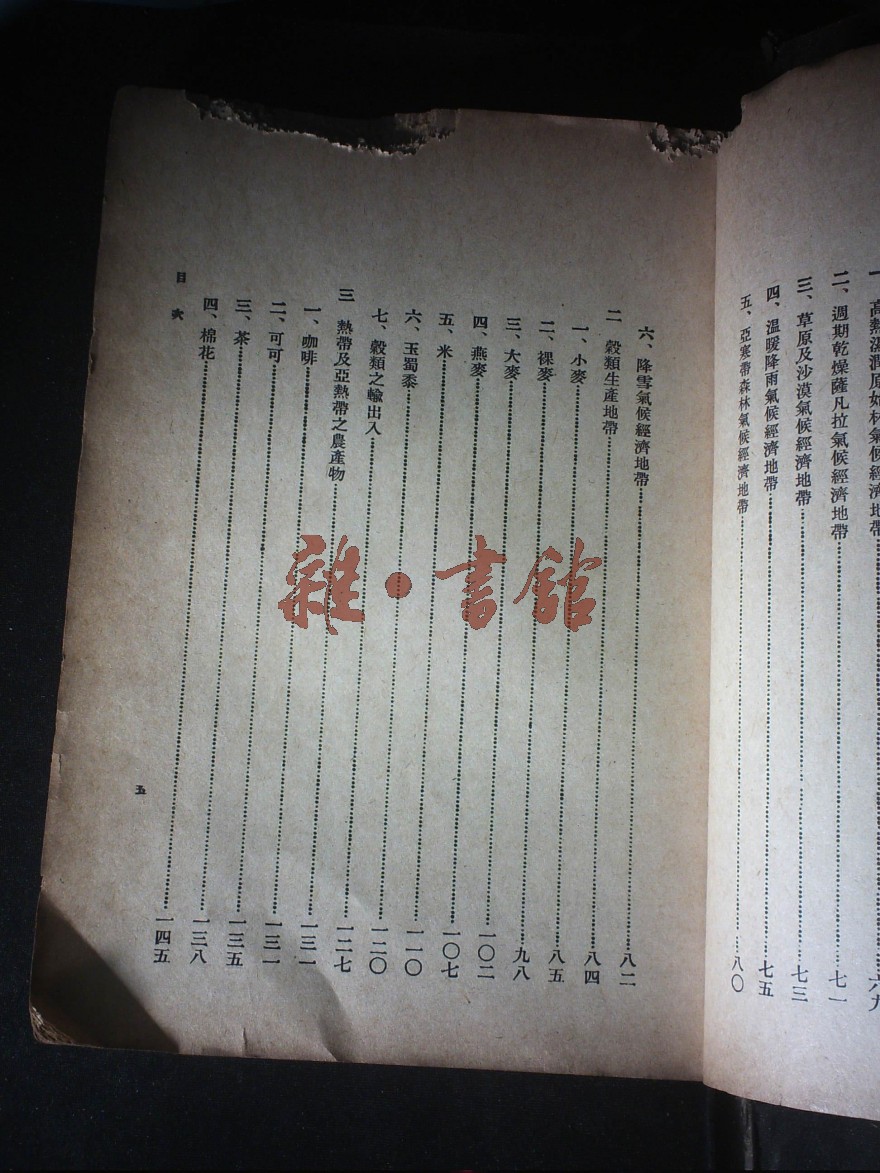 一、高熱濕潤原始林氣候經濟地帶……六九
二、週期乾燥薩凡拉氣候經濟地帶……七一
三、草原及沙漠氣候經濟地帶……七三
四、溫暖降雨氣候經濟地帶……七五
五、亞寒帶森林氣候經濟地帶……八〇
六、降雪氣候經濟地帶……八二
二 穀類生產地帶……八四
一、小麥……八五
二、裸麥……九八
三、大麥……一〇二
四、燕麥……一〇七
五、米……一一〇
六、玉蜀黍……一二〇
七、穀類之輸出入……一二七
三 熱帶及亞熱帶之農產物……一三一
一、咖啡……一三一
二、可可……一三五
三、茶……一三八
四、棉花……一四五
目次
五
雜·書館